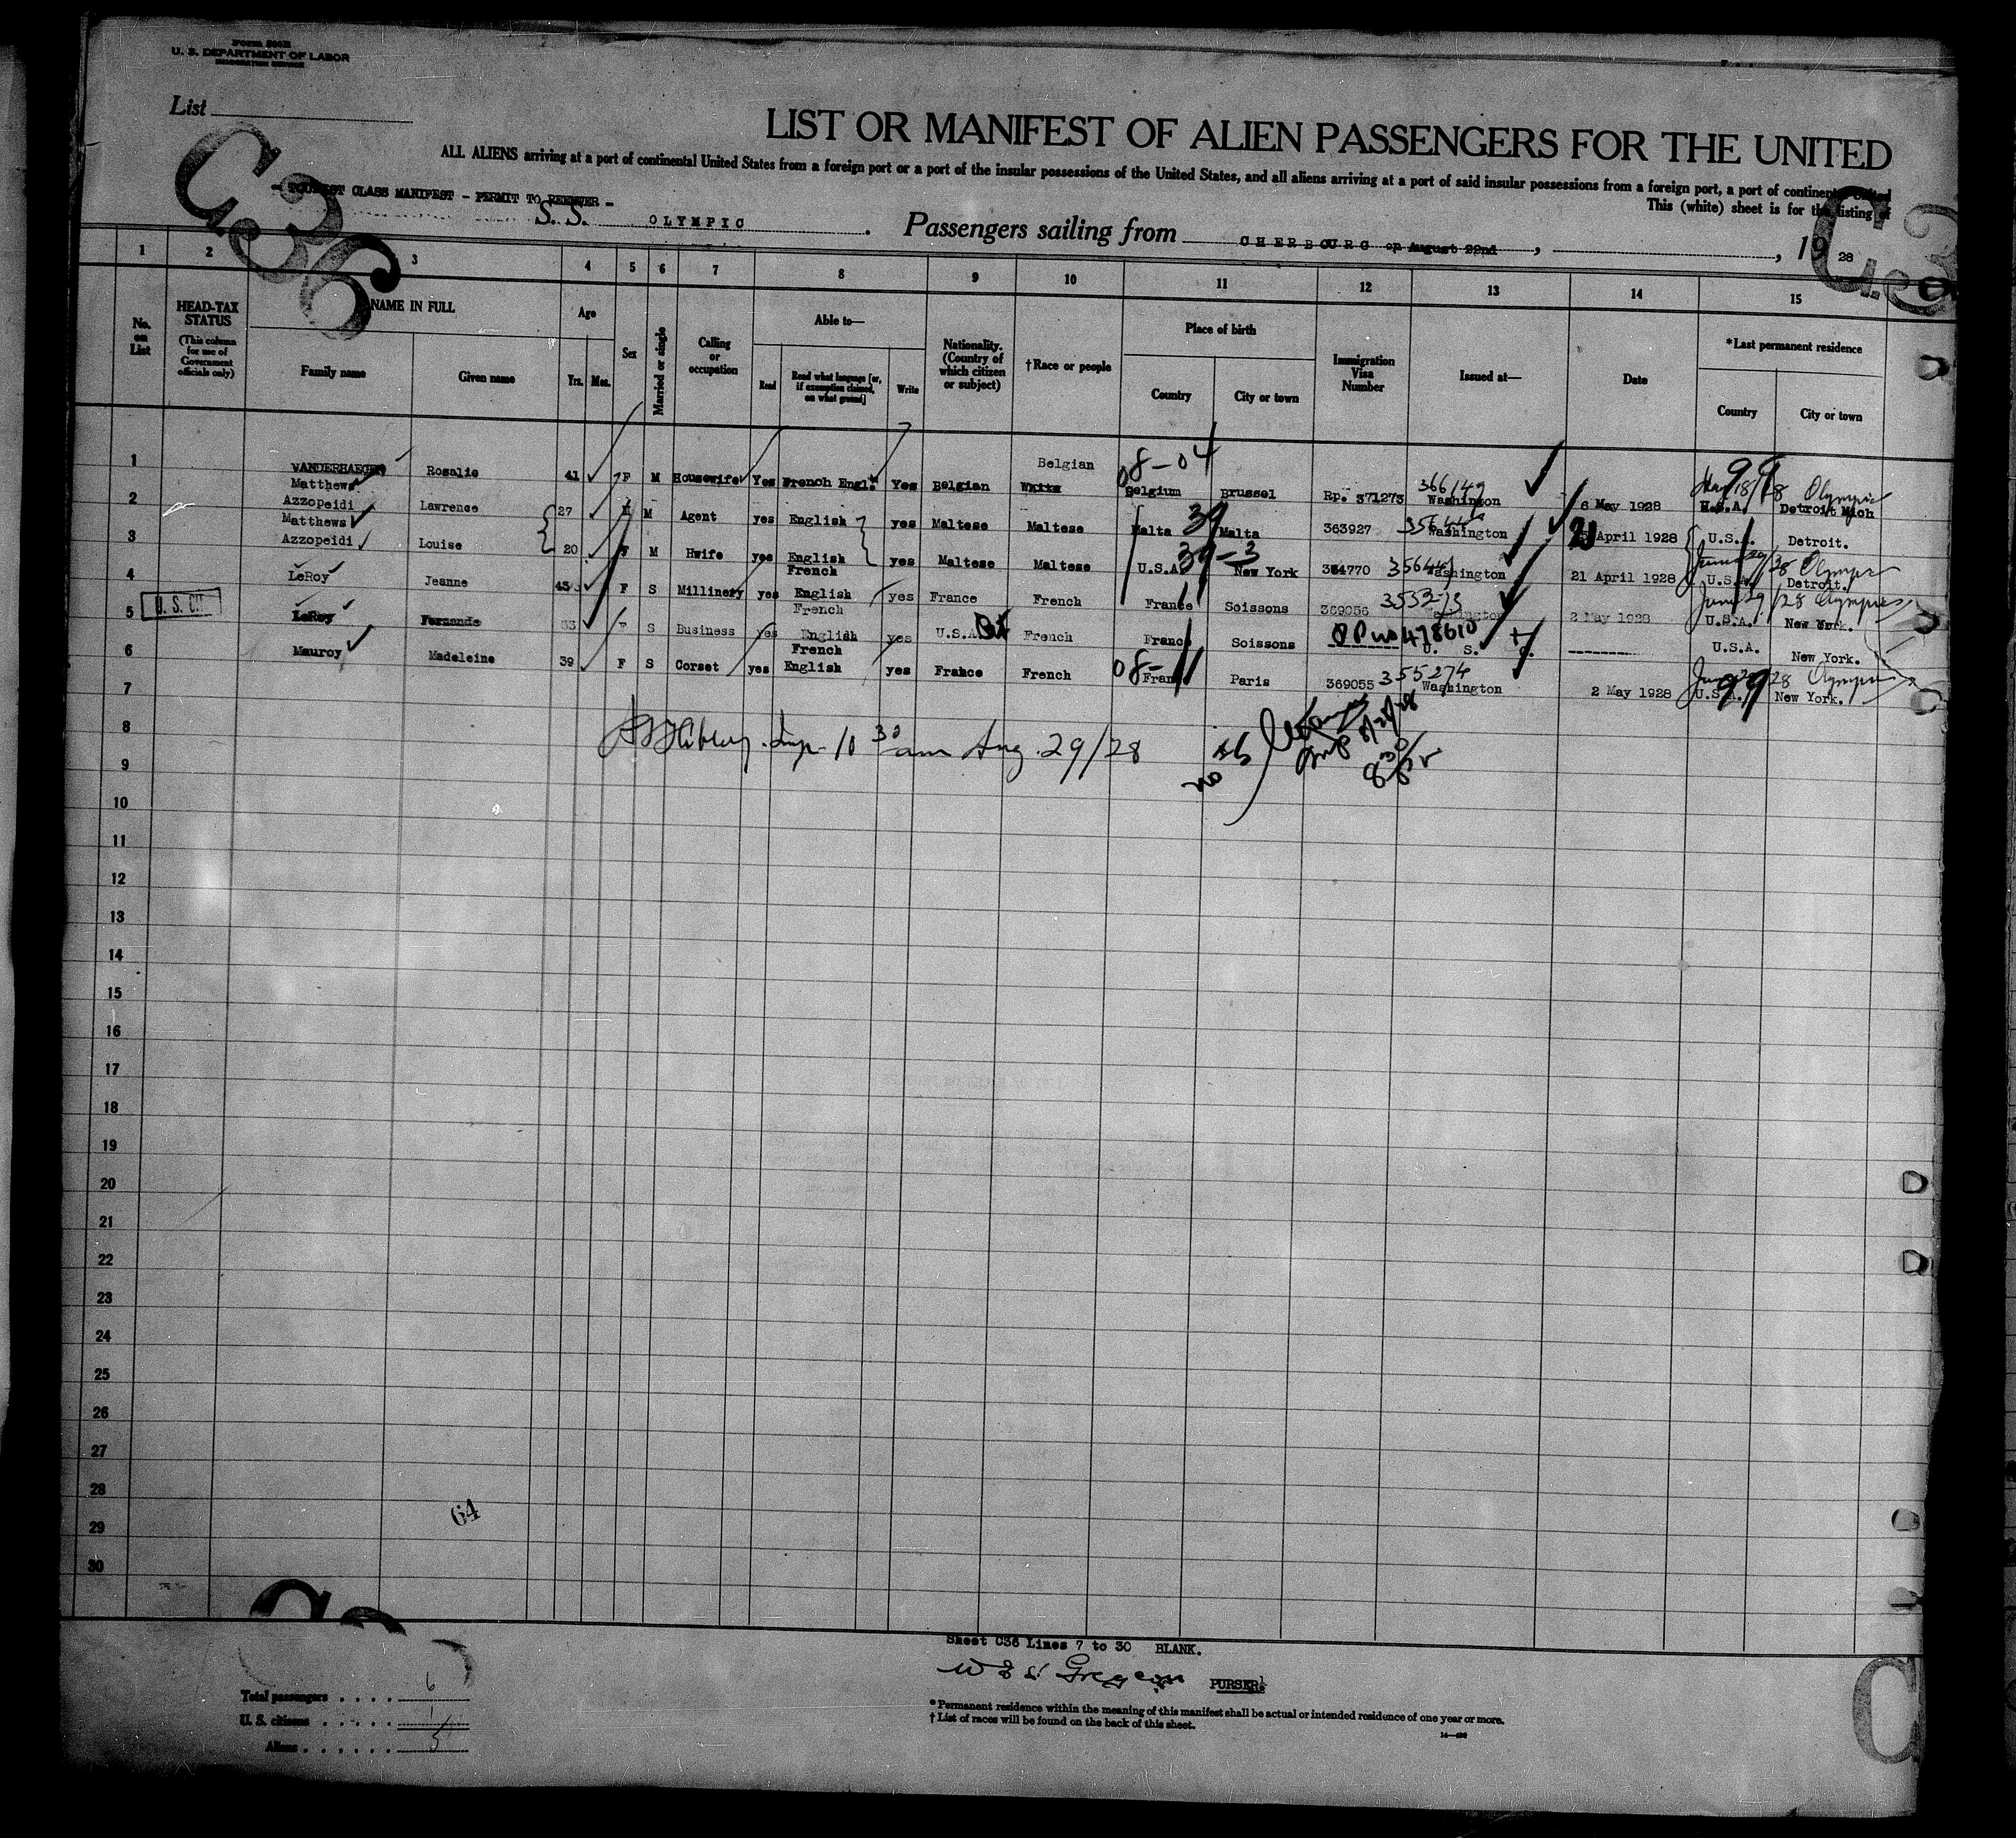 Form 500B
U. S. DEPARTMENT OF LABOR
IMMIGRATION SERVICE
List
C.36
LIST OR MANIFEST OF ALIEN PASSENGERS FOR THE UNITED
ALL ALIENS arriving at a port of continental United States from a foreign port or a port of the insular possessions of the United States, and all aliens arriving at a port of said insular possessions from a foreign port, a port of continental United
This (white) sheet is for the listing of
- TOURIST CLASS MANIFEST - PERMIT TO REENTER -
S. S. OLYMPIC . Passengers sailing from CHERBOURG on August 22nd , , 19 28
1 2 3 4 5 6 7 8 9 10 11 12 13 14 15
No. on List
HEAD-TAX STATUS
(This column for use of Government officials only)
NAME IN FULL
Family name
Given name
Age
Yrs. Mos.
Sex
Married or single
Calling or occupation
Able to—
Read
Read what language [or, if exemption claimed, on what ground]
Write
Nationality. (Country of which citizen or subject)
†Race or people
Place of birth
Country
City or town
Immigration Visa Number
Issued at—
Date
*Last permanent residence
Country
City or town
1 VANDERHAEGEN Matthews Rosalie 41 F M Housewife Yes French Engl. Yes Belgian Belgian White 08-04 Belgium Brussel Rp. 371273 366149 Washington 8 May 1928 99 U.S.A. Olympic Detroit Mich
2 Azzopeidi Matthews Lawrence 27 M M Agent yes English yes Maltese Maltese Malta 39 Malta 363927 Washington April 1928 U.S.A. Detroit.
3 Azzopeidi Louise 20 F M Hwife yes English yes Maltese Maltese U.S.A. 39-3 New York 364770 Washington 21 April 1928 June 29/28 Olympic U.S.A. Detroit.
4 LeRoy Jeanne 45 F S Millinery yes French English yes France French France Soissons 369056 Washington 2 May 1928 June 29/28 Olympic U.S.A. New York.
U. S. CIT.
5 LeRoy Fernande 33 F S Business yes French English yes U.S.A. French France Soissons PP no 478610 U. S. U.S.A. New York.
6 Mauroy Madeleine 39 F S Corset yes French English yes France French 08- France Paris 369055 355274 Washington 2 May 1928 June 29 28 Olympic 99 U.S.A. New York.
7
8 Insp. 10 30 am Aug. 29/28
9
10
11
12
13
14
15
16
17
18
19
20
21
22
23
24
25
26
27
28
64
29
30
Sheet C36 Lines 7 to 30 BLANK.
PURSER.
Total passengers . . . . 6
U. S. citizens . . . . . 1
Aliens . . . . . . 5
*Permanent residence within the meaning of this manifest shall be actual or intended residence of one year or more.
†List of races will be found on the back of this sheet.